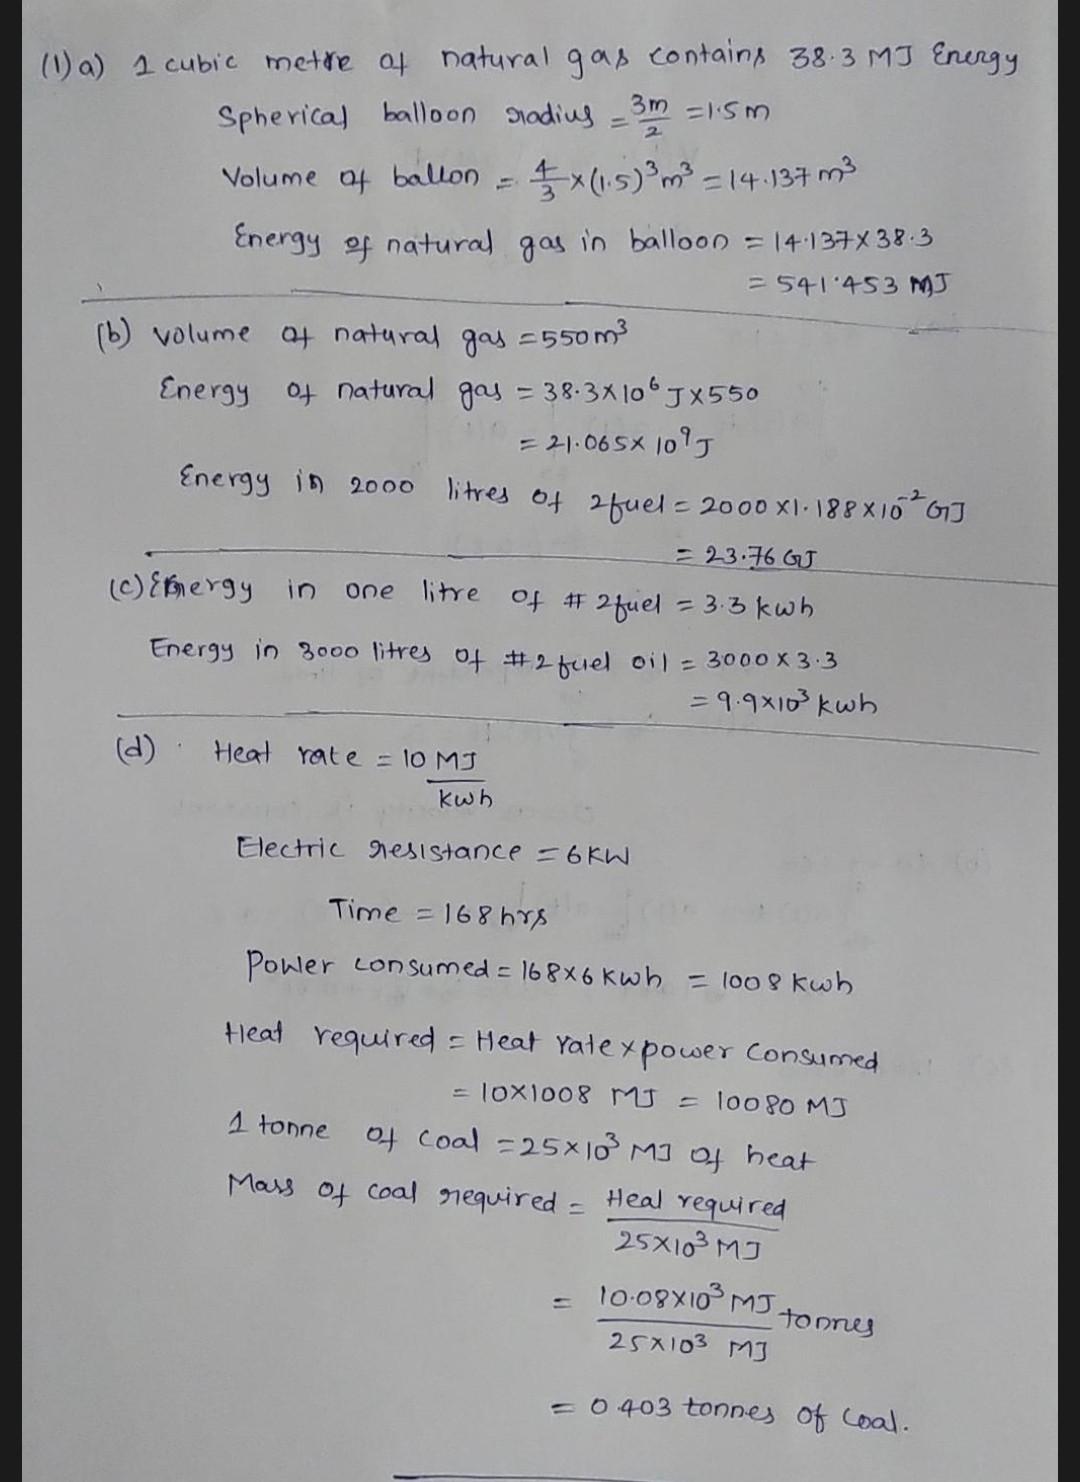 (1) a) 1 cubic metre of natural gas contains 38.3 MJ Energy
Spherical balloon radius = 3m/2 = 1.5 m
Volume of ballon = 4/3 × (1.5)³ m³ = 14.137 m³
Energy of natural gas in balloon = 14.137 × 38.3
= 541.453 MJ
(b) volume of natural gas = 550 m³
Energy of natural gas = 38.3 × 10⁶ J × 550
= 21.065 × 10⁹ J
Energy in 2000 litres of 2fuel = 2000 × 1.188 × 10⁻² GJ
= 23.76 GJ
(c) Energy in one litre of # 2fuel = 3.3 kwh
Energy in 3000 litres of #2 fuel oil = 3000 × 3.3
= 9.9 × 10³ kwh
(d) Heat rate = 10 MJ/kwh
Electric resistance = 6 KW
Time = 168 hrs
Power consumed = 168 × 6 kwh = 1008 kwh
Heat required = Heat rate × power consumed
= 10 × 1008 MJ = 10080 MJ
1 tonne of coal = 25 × 10³ MJ of heat
Mass of coal required = Heal required / 25 × 10³ MJ
= 10.08 × 10³ MJ / 25 × 10³ MJ tonnes
= 0.403 tonnes of coal.